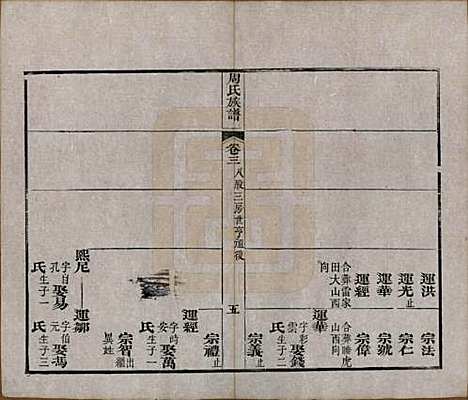 運洪
運光止
運華
運經
合葬雷家
田大山西
向
宗法
宗仁
宗號
宗偉
合葬睡虎
山西向
運華
字彩娶錢
雲氏生子二
宗義止
周氏族譜
卷三
八敬三房貴亨遺後
五
宗禮止
運經
字時娶萬
安氏生子一
宗智出繼
異姓
熙尼
字自娶易
孔氏生子一
運鄒
字伯娶馮
元氏生子三